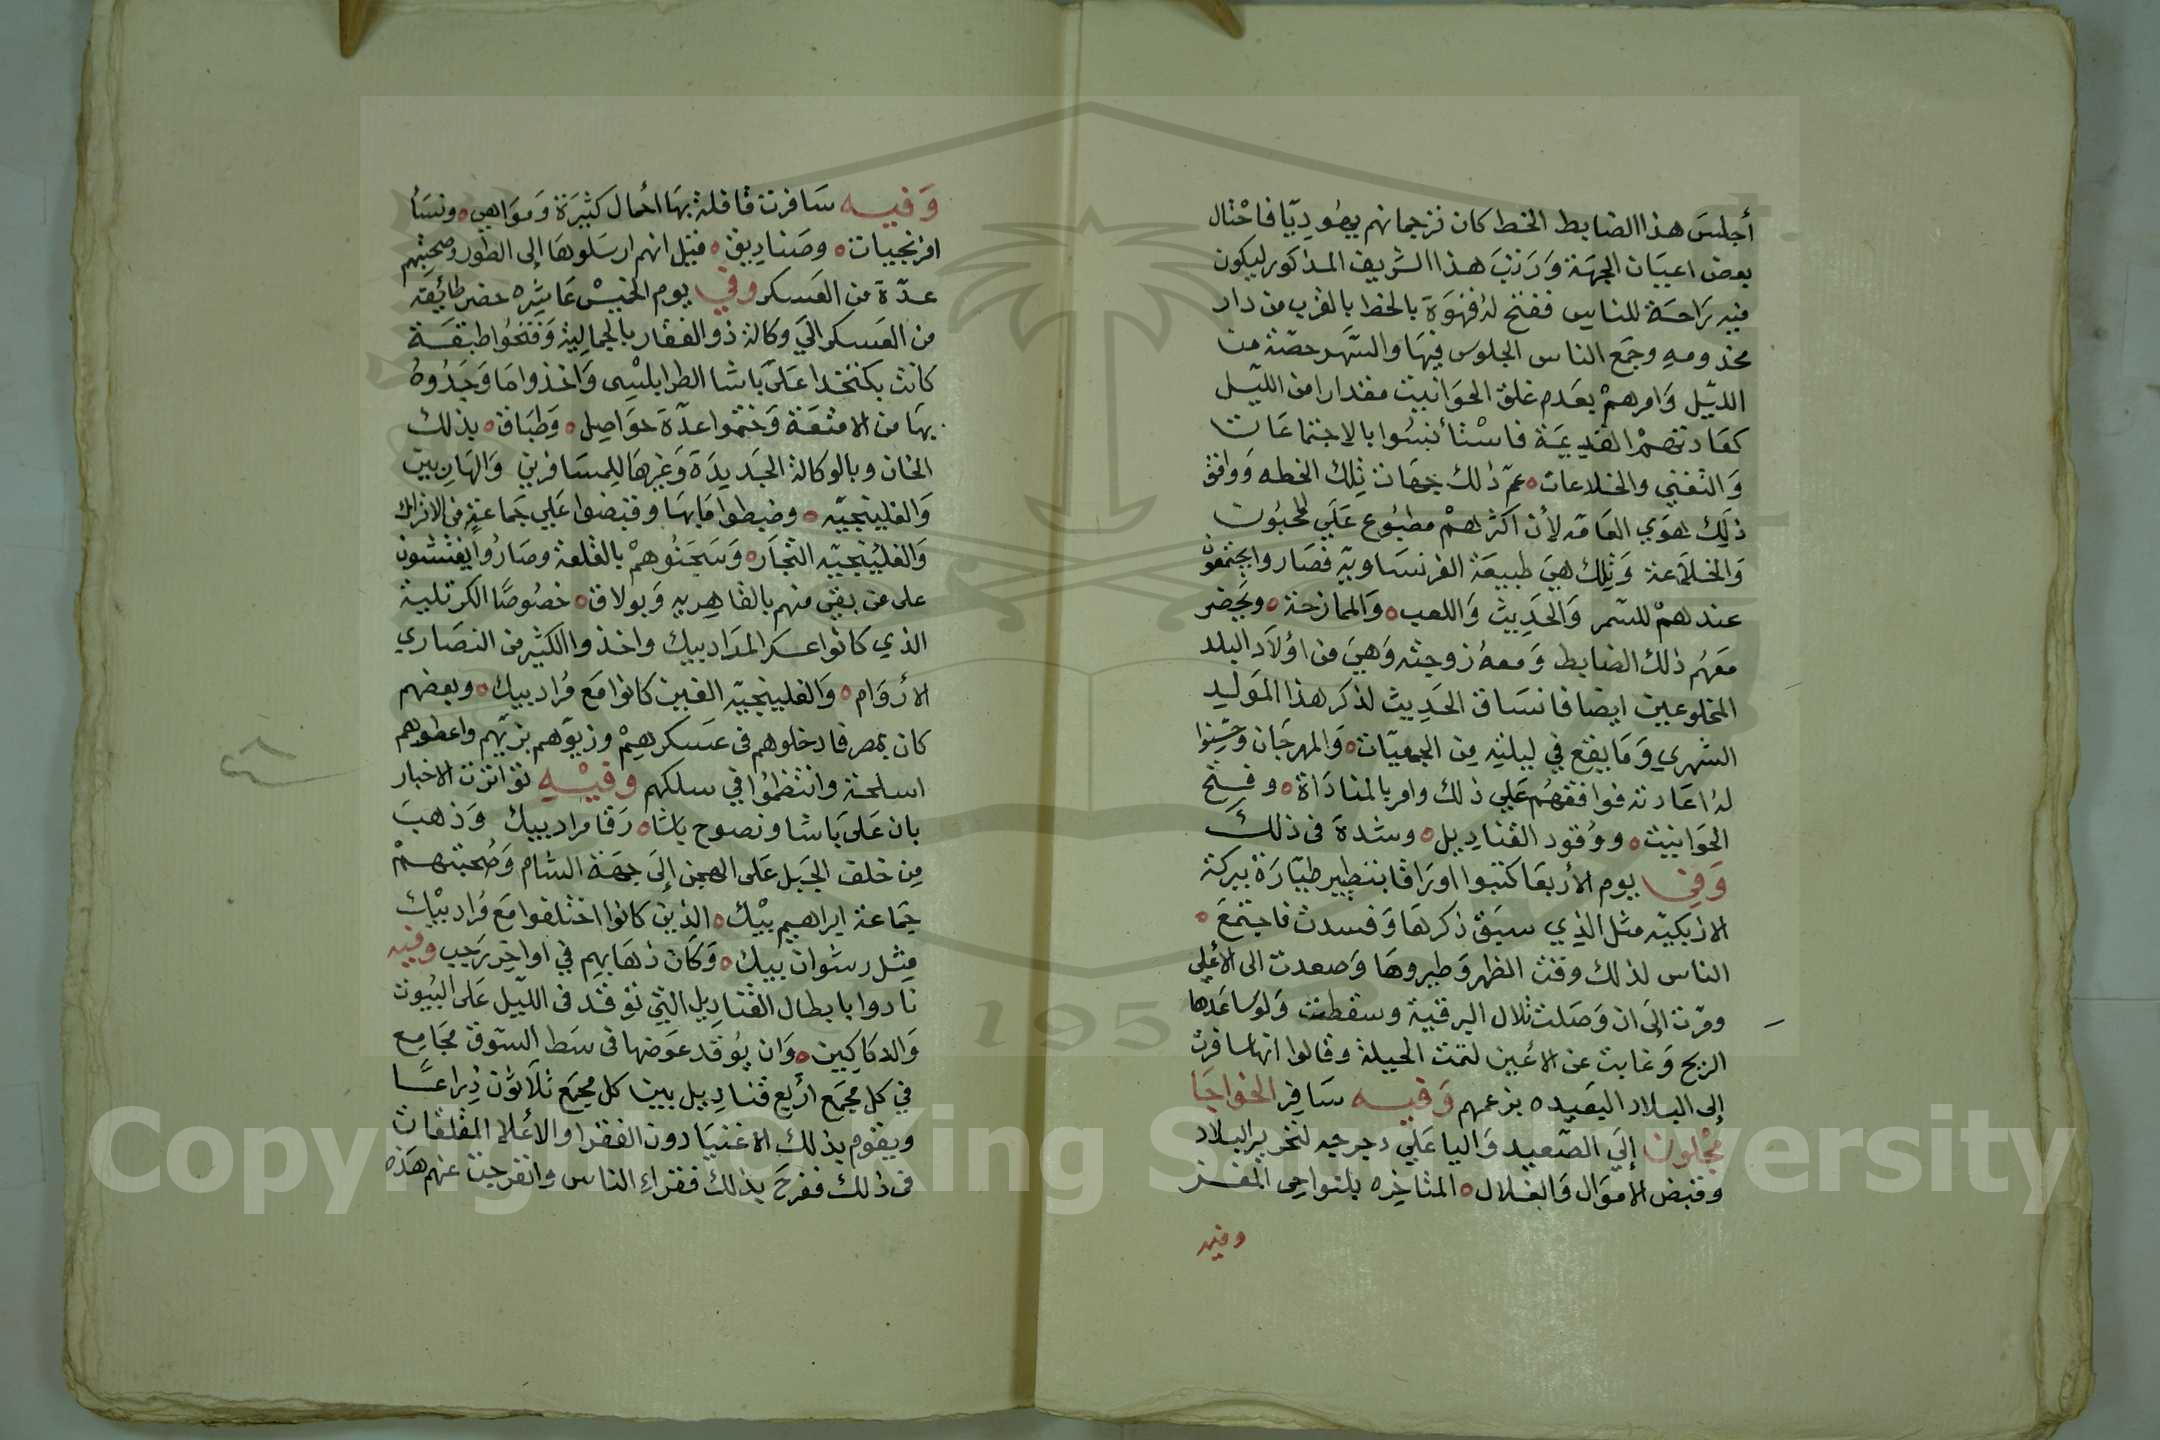 أجلس هذا الضابط الخط كان ترجمانهم يهوديا فاحتال
بعض اعيان الجهة ورتب هذا الشريف المذكور ليكون
فيه راحة للناس ففتح له قهوة بالخط بالقرب من دار
مخدومه وجمع الناس الجلوس فيها والسهر حصة من
الليل وامرهم بعدم غلق الحوانيت مقدارا من الليل
كعادتهم القديمة فاستأنسوا بالاجتماعات
والتغني والخلاعات عم ذلك جهات تلك الخطه ووافق
ذلك هوي العامه لأن اكثرهم مطبوع علي المجون
والخلاعة وتلك هي طبيعة الفرنساويه فصاروا يجتمعون
عندهم للسمر والحديث واللعب والممازحة ويحضر
معهم ذلك الضابط ومعه زوجته وهي من اولاد البلد
المخلوعين ايضا فانساق الحديث لذكر هذا المولد
الشهري وما يقع في ليلته من الجمعيات والمهرجان وحسنوا
له اعادته فوافقهم علي ذلك وامر بالمناداة وفتح
الحوانيت ووقود القناديل وشدة في ذلك
وفي يوم الأربعا كتبوا اوراقا بتطيير طيارة ببركة
الازبكيه مثل الذي سبق ذكرها وفسدت فاجتمع
الناس لذلك وقت الظهر وطيروها وصعدت الى الأعلي
ومرت إلى ان وصلت تلال البرقية وسقطت ولو ساعدها
الريح وغابت عن الاعين لتمت الحيلة وقالوا انها سافرت
إلى البلاد البعيده بزعمهم وفيه سافر الخواجا
مجلون إلي الصعيد واليا علي جرجه لتحرير البلاد
وقبض الاموال والغلال المتاخره بالنواحي المفز
وفيه
وفيه سافرت قافلة بها احمال كثيرة ومواهي ونسأ
افرنجيات وصناديق قيل انهم ارسلوها إلى الطور وصحبتهم
عدة من العسكر وفي يوم الخميس عاشره حضر طائفة
من العسكر الي وكالة ذو الفقار بالجمالية وفتحوا طبقة
كانت بكتخدا على باشا الطرابلسي واخذوا ما وجدوه
بها من الامتعة وختموا عدة حواصل وطباق بذلك
الخان وبالوكالة الجديدة وغيرها للمسافرين والهاربين
والقلينجيه وضبطوا ما بها وقبضوا علي جماعة من الاتراك
والقلينجيه التجار وسجنوهم بالقلعة وصاروا يفتشون
على من بقي منهم بالقاهريه وبولاق خصوصا الكرتلية
الذي كانوا عسكر المراد بيك واخذوا الكثير من النصاري
الأروام والقلينجيه الذين كانوا مع مراد بيك وبعضهم
كان بمصر فادخلوهم في عسكرهم وزيوهم بزيهم واعطوهم
اسلحة وانتظموا في سلكهم وفيه تواترت الاخبار
بان على باشا ونصوح باشا رقا مراد بيك وذهب
من خلف الجبل على الهجن إلى جهة الشام وصحبتهم
جماعة ابراهيم بيك الذين كانوا اختلفوا مع مراد بيك
مثل رشوان بيك وكان ذهابهم في اواخر رجب وفيه
نادوا بابطال القناديل التي توقد في الليل على البيوت
والدكاكين وان يوقد عوضها في سط السوق مجامع
في كل مجمع أربع قناديل بين كل مجمع ثلاثون ذراعا
ويقوم بذلك الاغنيا دون الفقرا والأعلا المقلقات
في ذلك ففرح بذلك فقراء الناس وانفرجت عنهم هذه
Copyright © King Saud University
195